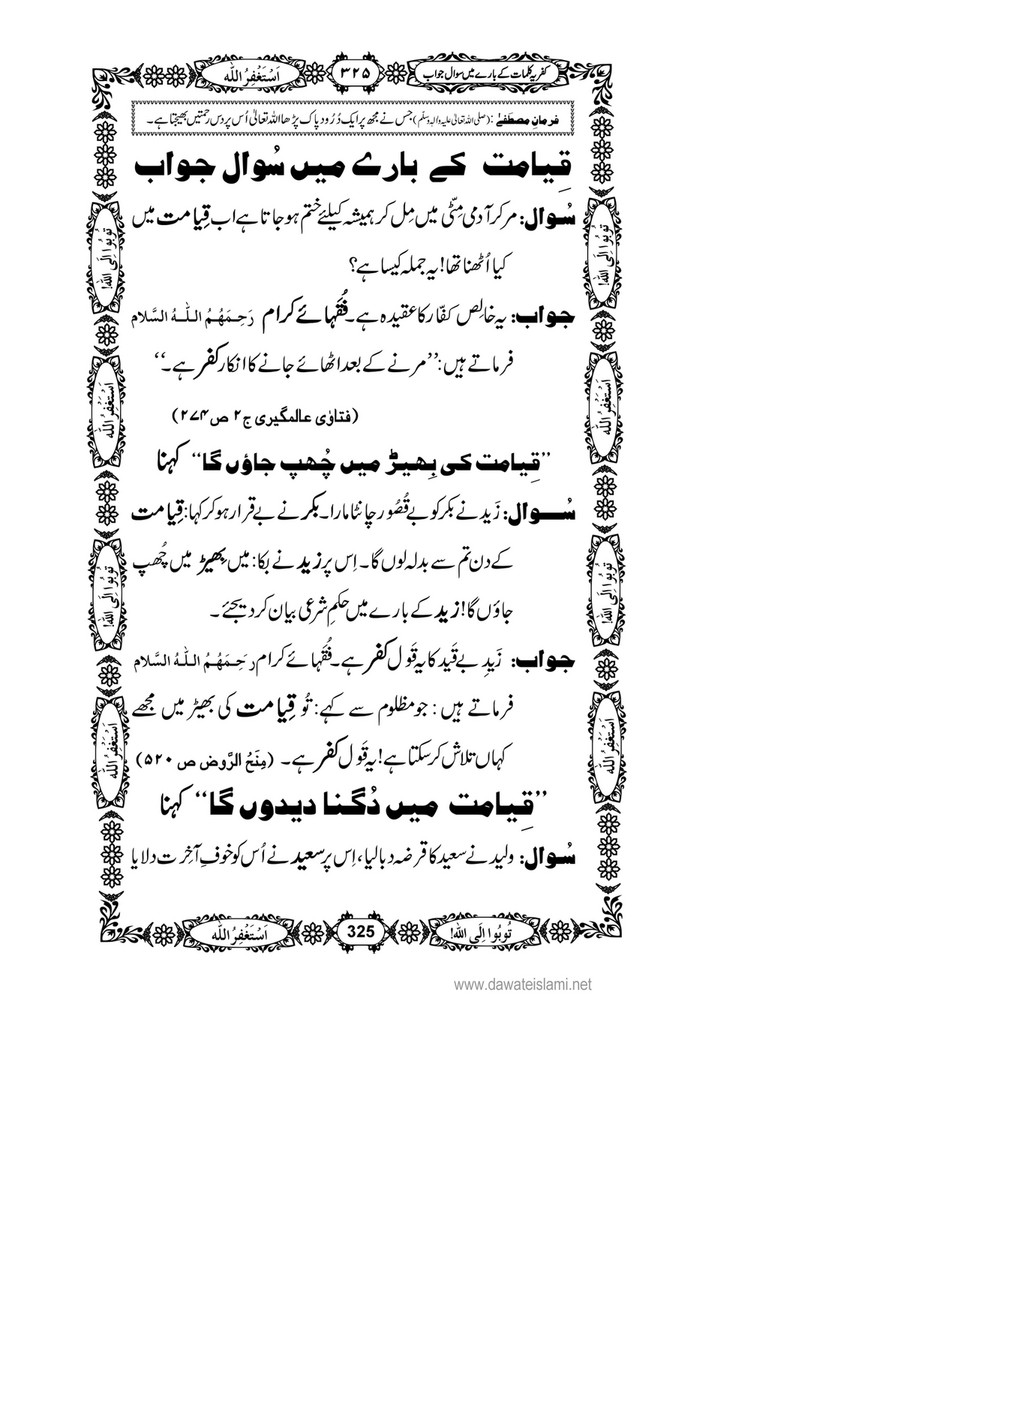 کفریہ کلمات کے بارے میں سوال جواب
۳۲۵
اَسْتَغْفِرُ اللّٰه
فرمانِ مصطفےٰ : (صلی اللہ تعالیٰ علیہ والہ وسلّم) جس نے مجھ پر ایک دُرُود پاک پڑھا اللہ تعالیٰ اُس پر دس رحمتیں بھیجتا ہے۔
قِیامت کے بارے میں سُوال جواب
سُوال: مر کر آدمی مِٹّی میں مِل کر ہمیشہ کیلئے ختم ہو جاتا ہے اب قِیامت میں
کیا اُٹھنا تھا! یہ جملہ کیسا ہے؟
جواب: یہ خالِص کفّار کا عقیدہ ہے۔ فُقَہائے کرام رَحِمَهُمُ اللّٰهُ السَّلام
فرماتے ہیں: ’’مرنے کے بعد اٹھائے جانے کا انکار کفر ہے۔‘‘
(فتاوٰی عالمگیری ج۲ ص۲۷۴)
’’قِیامت کی بِھیڑ میں چُھپ جاؤں گا‘‘ کہنا
سُوال: زَید نے بکر کو بے قُصُور چانٹا مارا۔ بکر نے بے قرار ہو کر کہا: قِیامت
کے دن تم سے بدلہ لوں گا۔ اِس پر زید نے بکا: میں بِھیڑ میں چُھپ
جاؤں گا! زید کے بارے میں حکمِ شرعی بیان کر دیجئے۔
جواب: زَیدِ بے قَید کا یہ قَول کفر ہے۔ فُقَہائے کرام رَحِمَهُمُ اللّٰهُ السَّلام
فرماتے ہیں: جو مظلوم سے کہے: تُو قِیامت کی بِھیڑ میں مجھے
کہاں تلاش کر سکتا ہے! یہ قَول کفر ہے۔ (مِنَحُ الرَّوض ص ۵۲۰)
’’قِیامت میں دُگنا دیدوں گا‘‘ کہنا
سُوال: ولید نے سعید کا قرضہ دبا لیا، اِس پر سعید نے اُس کو خوفِ آخِرت دلایا
تُوبُوا اِلَی اللّٰه!
اَسْتَغْفِرُ اللّٰه
تُوبُوا اِلَی اللّٰه!
اَسْتَغْفِرُ اللّٰه
تُوبُوا اِلَی اللّٰه!
اَسْتَغْفِرُ اللّٰه
تُوبُوا اِلَی اللّٰه!
اَسْتَغْفِرُ اللّٰه
تُوبُوا اِلَی اللّٰه!
325
اَسْتَغْفِرُ اللّٰه
www.dawateislami.net